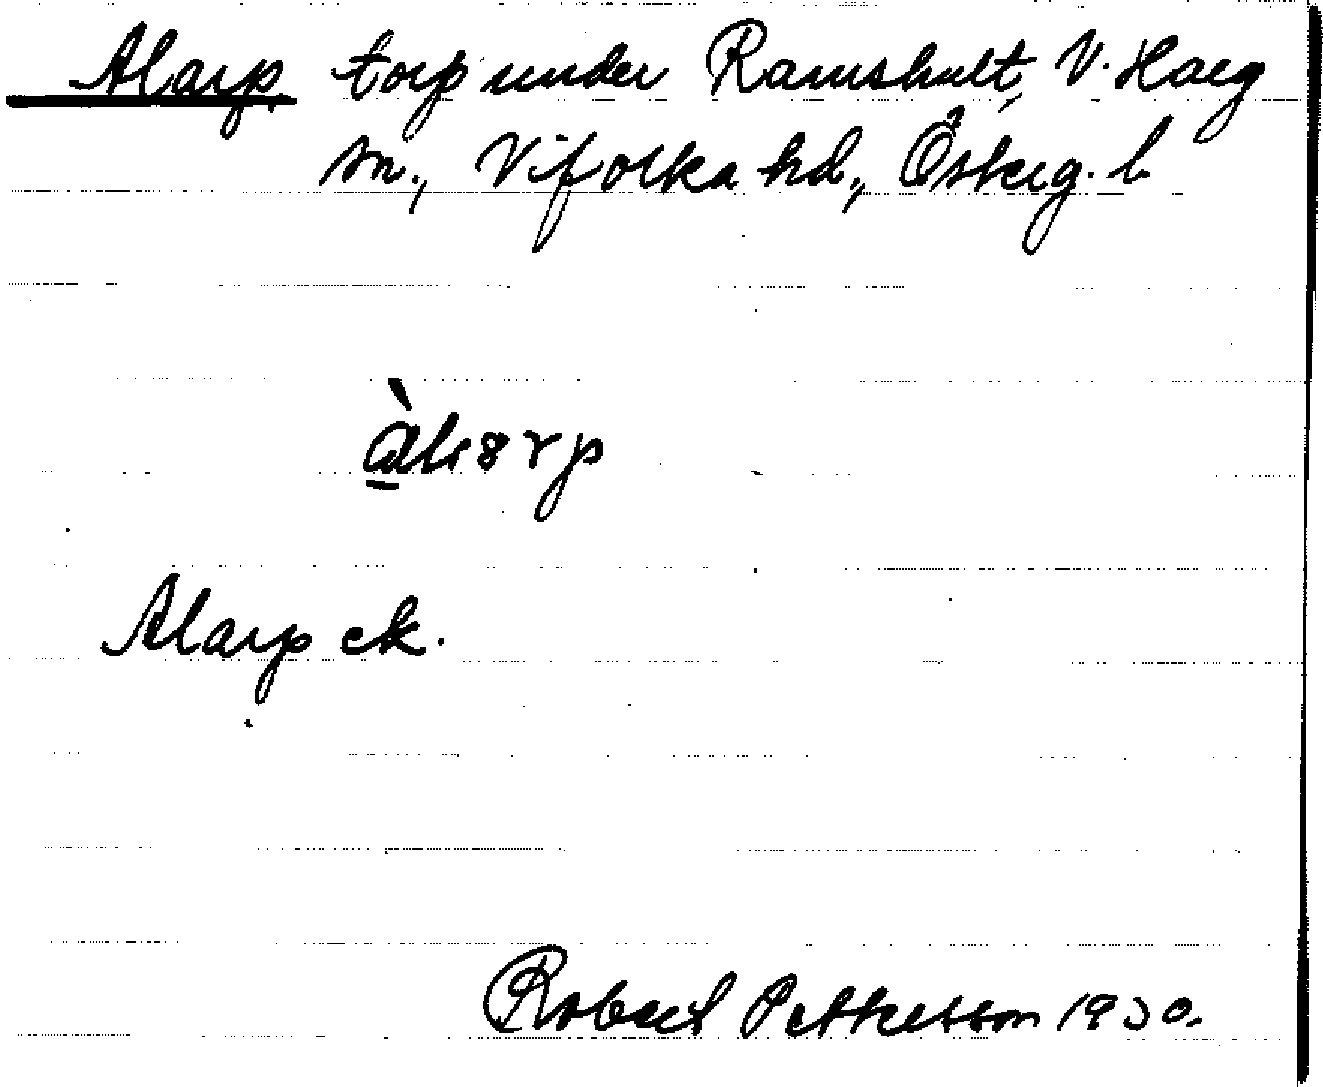 Alarp, torp under Ramshult, V. Harg
sn., Vifolka hd., Österg. l.
Alarp ek.
Robert Pettersson 1930.